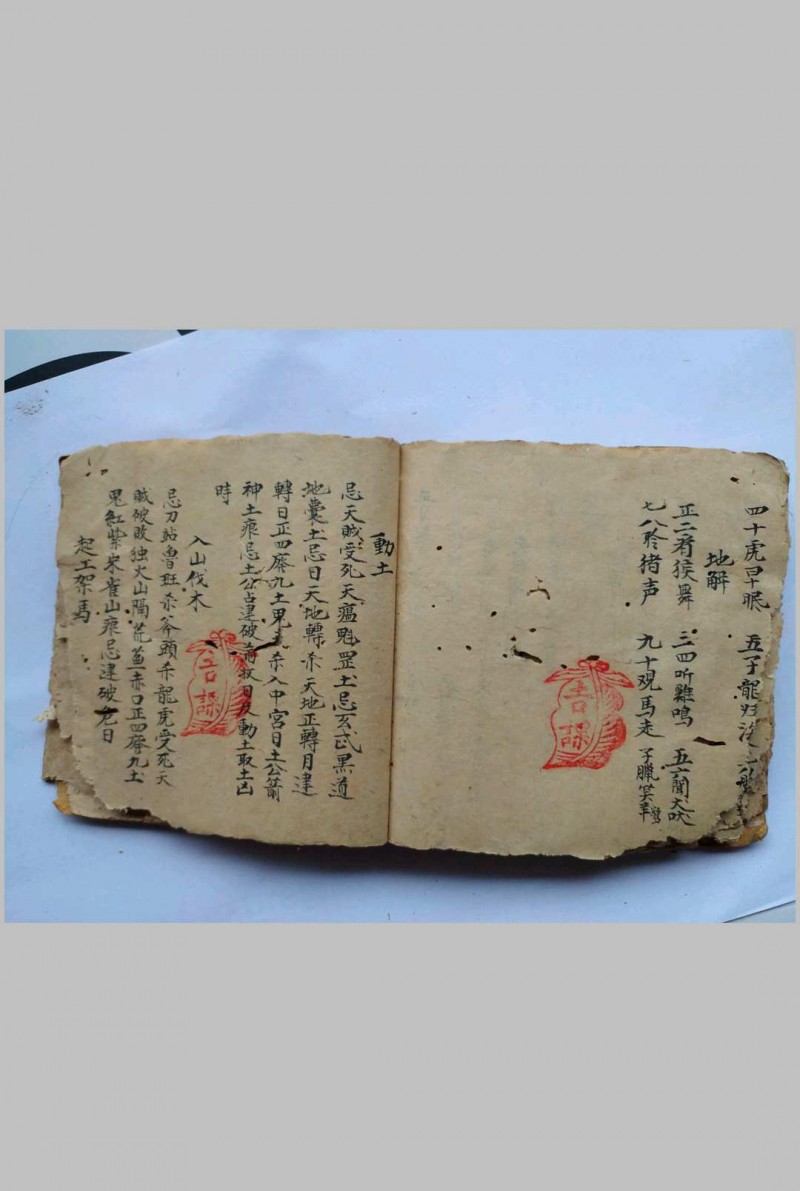 四十虎早眠 五子龍归
地解
正二看猴舞 三四听雞鳴 五六聞犬吠
七八聆猪声 九十观馬走 子臘笑羊
動土
忌天賊受死天瘟魁罡土忌玄武黑道
地囊土忌日天地轉杀天地正轉月建
轉日正四廢九土鬼 杀入中宮日土公箭
神土痕忌土公占建破 日及動土取土凶
時
入山伐木
忌刀砧魯班杀斧頭杀龍虎受死天
賊破敗独火山隔荒蕪赤口正四廢九土
鬼紅紫朱雀山痕忌建破危日
起工架馬
吉課
吉課